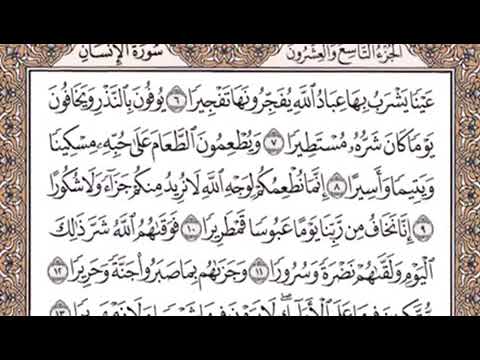 سُورَةُ الإِنسَانِ
الجُزْءُ التَّاسِعُ وَالعِشْرُونَ
عَيْنًا يَشْرَبُ بِهَا عِبَادُ ٱللَّهِ يُفَجِّرُونَهَا تَفْجِيرًا ٦ يُوفُونَ بِٱلنَّذْرِ وَيَخَافُونَ
يَوْمًا كَانَ شَرُّهُۥ مُسْتَطِيرًا ٧ وَيُطْعِمُونَ ٱلطَّعَامَ عَلَىٰ حُبِّهِۦ مِسْكِينًا
وَيَتِيمًا وَأَسِيرًا ٨ إِنَّمَا نُطْعِمُكُمْ لِوَجْهِ ٱللَّهِ لَا نُرِيدُ مِنكُمْ جَزَآءً وَلَا شُكُورًا
٩ إِنَّا نَخَافُ مِن رَّبِّنَا يَوْمًا عَبُوسًا قَمْطَرِيرًا ١٠ فَوَقَىٰهُمُ ٱللَّهُ شَرَّ ذَٰلِكَ
ٱلْيَوْمِ وَلَقَّىٰهُمْ نَضْرَةً وَسُرُورًا ١١ وَجَزَىٰهُم بِمَا صَبَرُوا۟ جَنَّةً وَحَرِيرًا ١٢